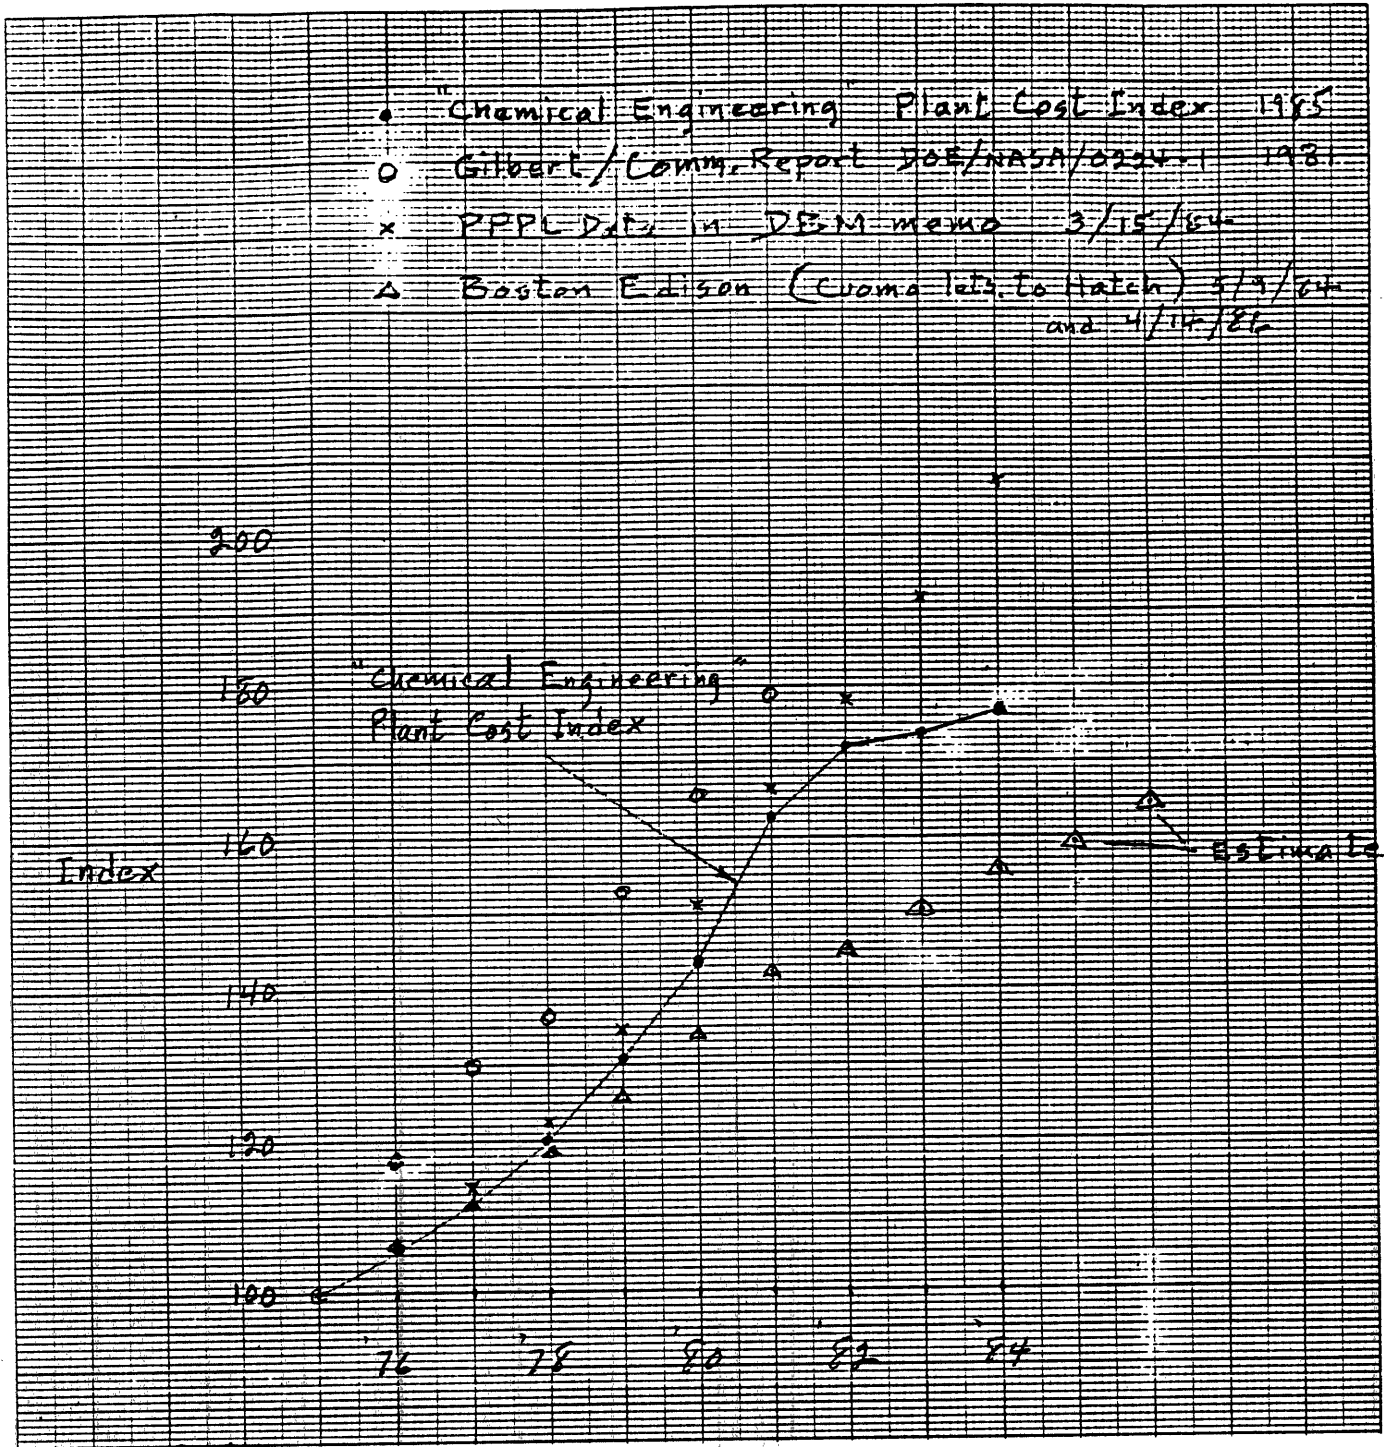 • "Chemical Engineering" Plant Cost Index 1985
o Gilbert/Comm. Report DOE/NASA/0224-1 1981
x PPPL Data in DBM memo 3/15/84
△ Boston Edison (Cuomo lets. to Hatch) 5/9/84
and 4/14/86
200
"Chemical Engineering"
Plant Cost Index
180
160
Index
Estimate
140
120
100
'76 '78 '80 '82 '84